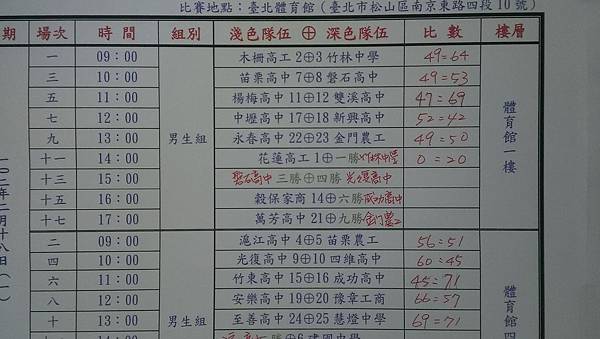 比賽地點：臺北體育館（臺北市松山區南京東路四段10號）
期 場次 時間 組別 淺色隊伍 ⊕ 深色隊伍 比數 樓層
一 09:00 木柵高工 2⊕3 竹林中學 49=64
三 10:00 苗栗高中 7⊕8 磐石高中 49=53
五 11:00 楊梅高中 11⊕12 雙溪高中 47=69
七 12:00 中壢高中 17⊕18 新興高中 52=42
九 13:00 男生組 永春高中 22⊕23 金門農工 49=50 體育館一樓
十一 14:00 花蓮高工 1⊕一勝 竹林中學 0=20
十三 15:00 磐石高中 三勝⊕四勝 光復高中
十五 16:00 穀保家商 14⊕六勝 成功高中
十七 17:00 萬芳高中 21⊕九勝 金門農工
一〇二年二月十八日（一）
二 09:00 滬江高中 4⊕5 苗栗農工 56=51
四 10:00 光復高中 9⊕10 四維高中 60=45
六 11:00 竹東高中 15⊕16 成功高中 45=71
八 12:00 安樂高中 19⊕20 豫章工商 66=57
十 13:00 男生組 至善高中 24⊕25 慧燈中學 69=71 體育館四
勝⊕6 建國中學